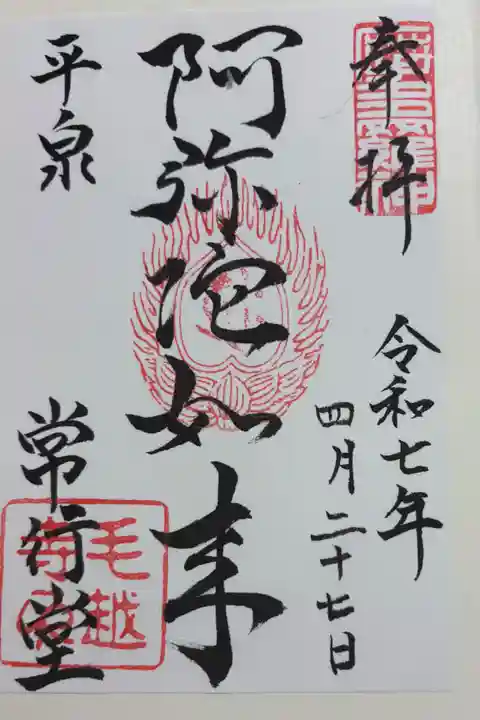 奉拝
令和七年
四月二十七日
阿弥陀如来
平泉
常行堂
毛越
寺